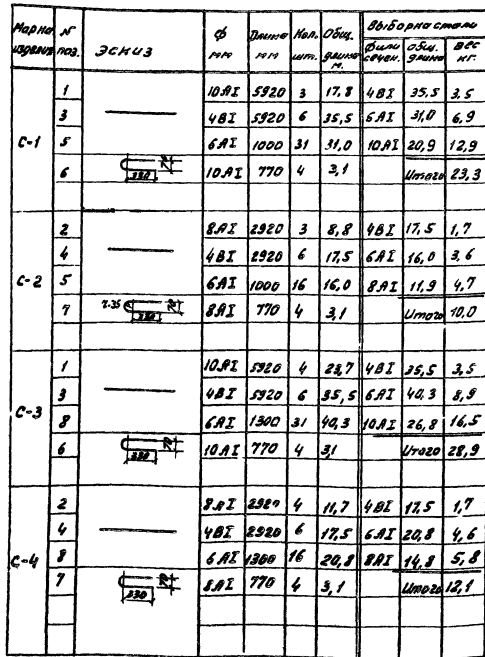 Марка изделия N поз. эскиз Ф мм Длина мм Кол. шт. Общ. длина м. Выборка стали
Ф или сечен. общ. длина вес кг.
С-1
1 10АI 5920 3 17,8 4ВI 35,5 3,5
3 4ВI 5920 6 35,5 6АI 31,0 6,9
5 6АI 1000 31 31,0 10АI 20,9 12,9
6 330 70 10АI 770 4 3,1 Итого 23,3
С-2
2 8АI 2920 3 8,8 4ВI 17,5 1,7
4 4ВI 2920 6 17,5 6АI 16,0 3,6
5 6АI 1000 16 16,0 8АI 11,9 4,7
7 330 70 8АI 770 4 3,1 Итого 10,0
С-3
1 10АI 5920 4 23,7 4ВI 35,5 3,5
3 4ВI 5920 6 35,5 6АI 40,3 8,9
8 6АI 1300 31 40,3 10АI 26,8 16,5
6 330 70 10АI 770 4 3,1 Итого 28,9
С-4
2 8АI 2920 4 11,7 4ВI 17,5 1,7
4 4ВI 2920 6 17,5 6АI 20,8 4,6
8 6АI 1300 16 20,8 8АI 14,8 5,8
7 330 70 8АI 770 4 3,1 Итого 12,1